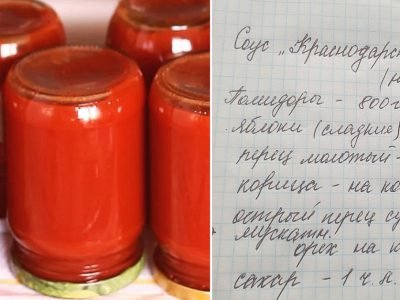 Соус „Краснодарск
(н
Помидоры - 800г
яблоки (сладкие)
перец молотый -
корица - на ко
острый перец су
мускатн.
орех на к
сахар - 1 ч.л.